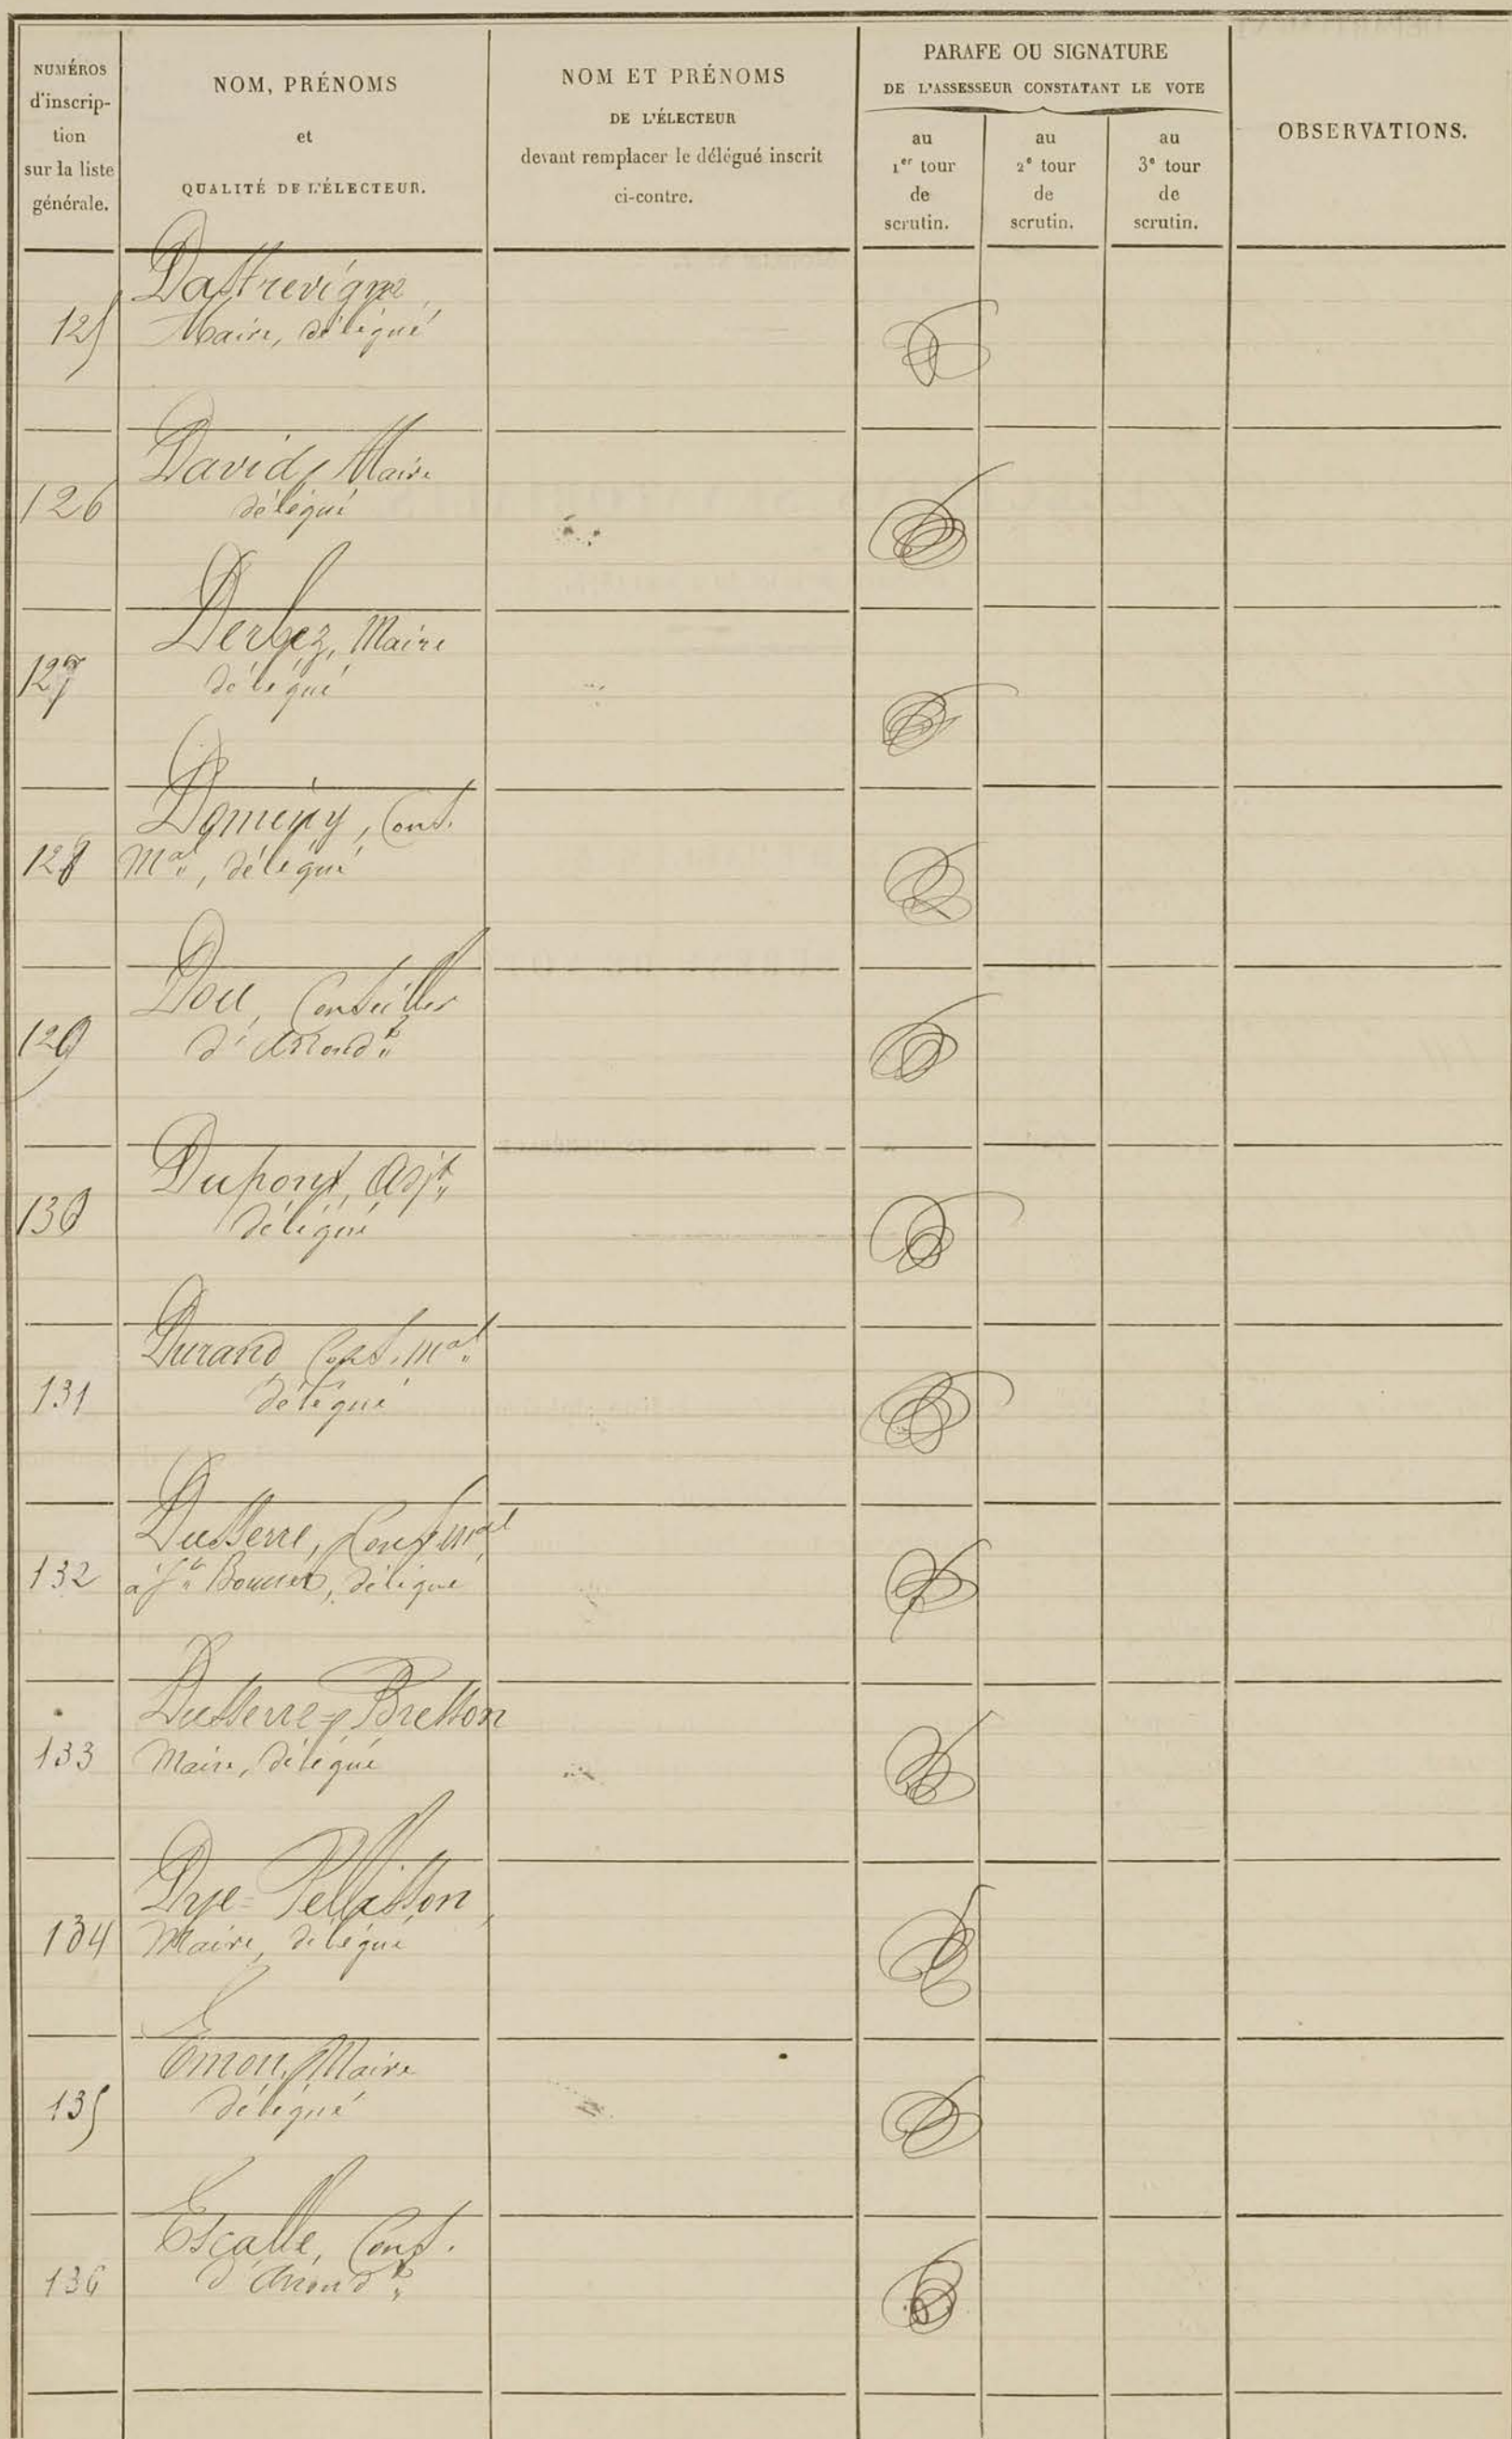 NUMÉROS
d'inscrip-
tion
sur la liste
générale.
NOM, PRÉNOMS
et
QUALITÉ DE L'ÉLECTEUR.
NOM ET PRÉNOMS
DE L'ÉLECTEUR
devant remplacer le délégué inscrit
ci-contre.
PARAFE OU SIGNATURE
DE L'ASSESSEUR CONSTATANT LE VOTE
au
1er tour
de
scrutin.
au
2e tour
de
scrutin.
au
3e tour
de
scrutin.
OBSERVATIONS.
Dastrevigne
125 Maire, délégué
David, Maire
126 délégué
Derbez, Maire
127 délégué
Domény, Cons.
128 Mal, délégué
Dou, Conseiller
129 d'Arrondt
Dupont, Adjt,
130 délégué
Durand Cons. Mal
131 délégué
Dusserre, Cons. mal
132 à St Bonnet, délégué
Dusserre-Bresson
133 Maire, délégué
Dye-Pellisson,
134 Maire, délégué
Emon, Maire
135 délégué
Escalle, Cons.
136 d'Arrondt